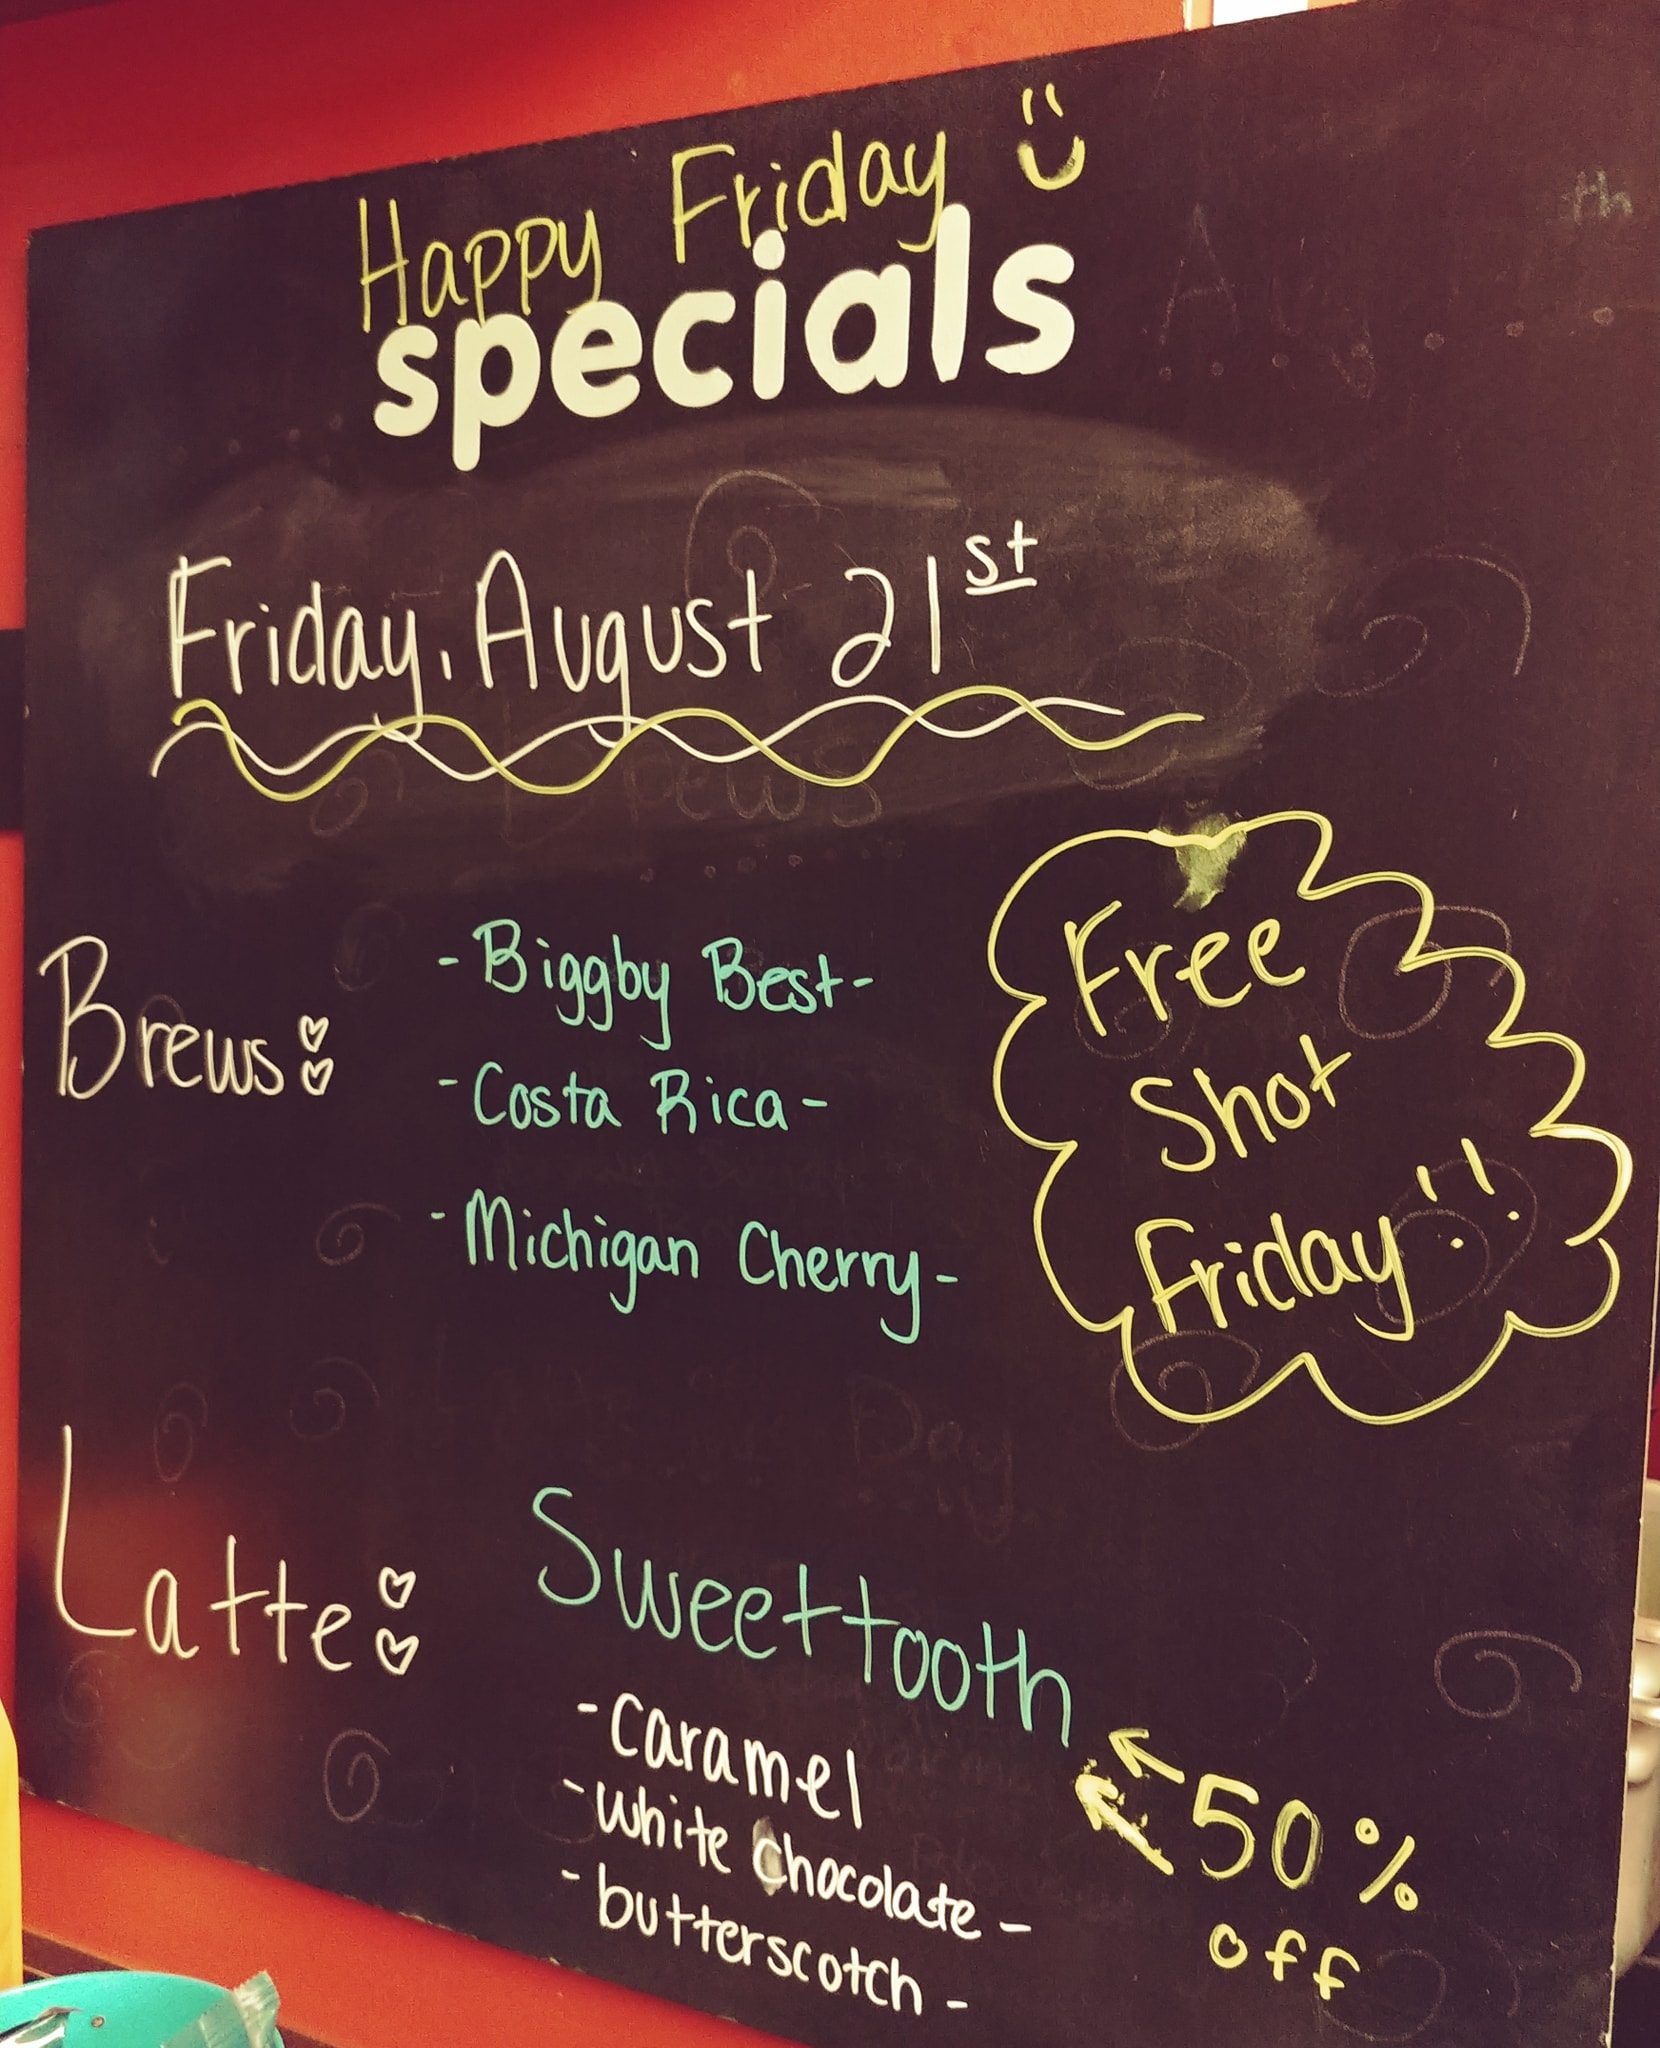 Happy Friday
specials
Friday, August 21st
Brews:
- Biggby Best -
- Costa Rica -
- Michigan Cherry -
Free
Shot
Friday!!
Latte:
Sweettooth
- caramel
- white chocolate -
- butterscotch -
50%
off